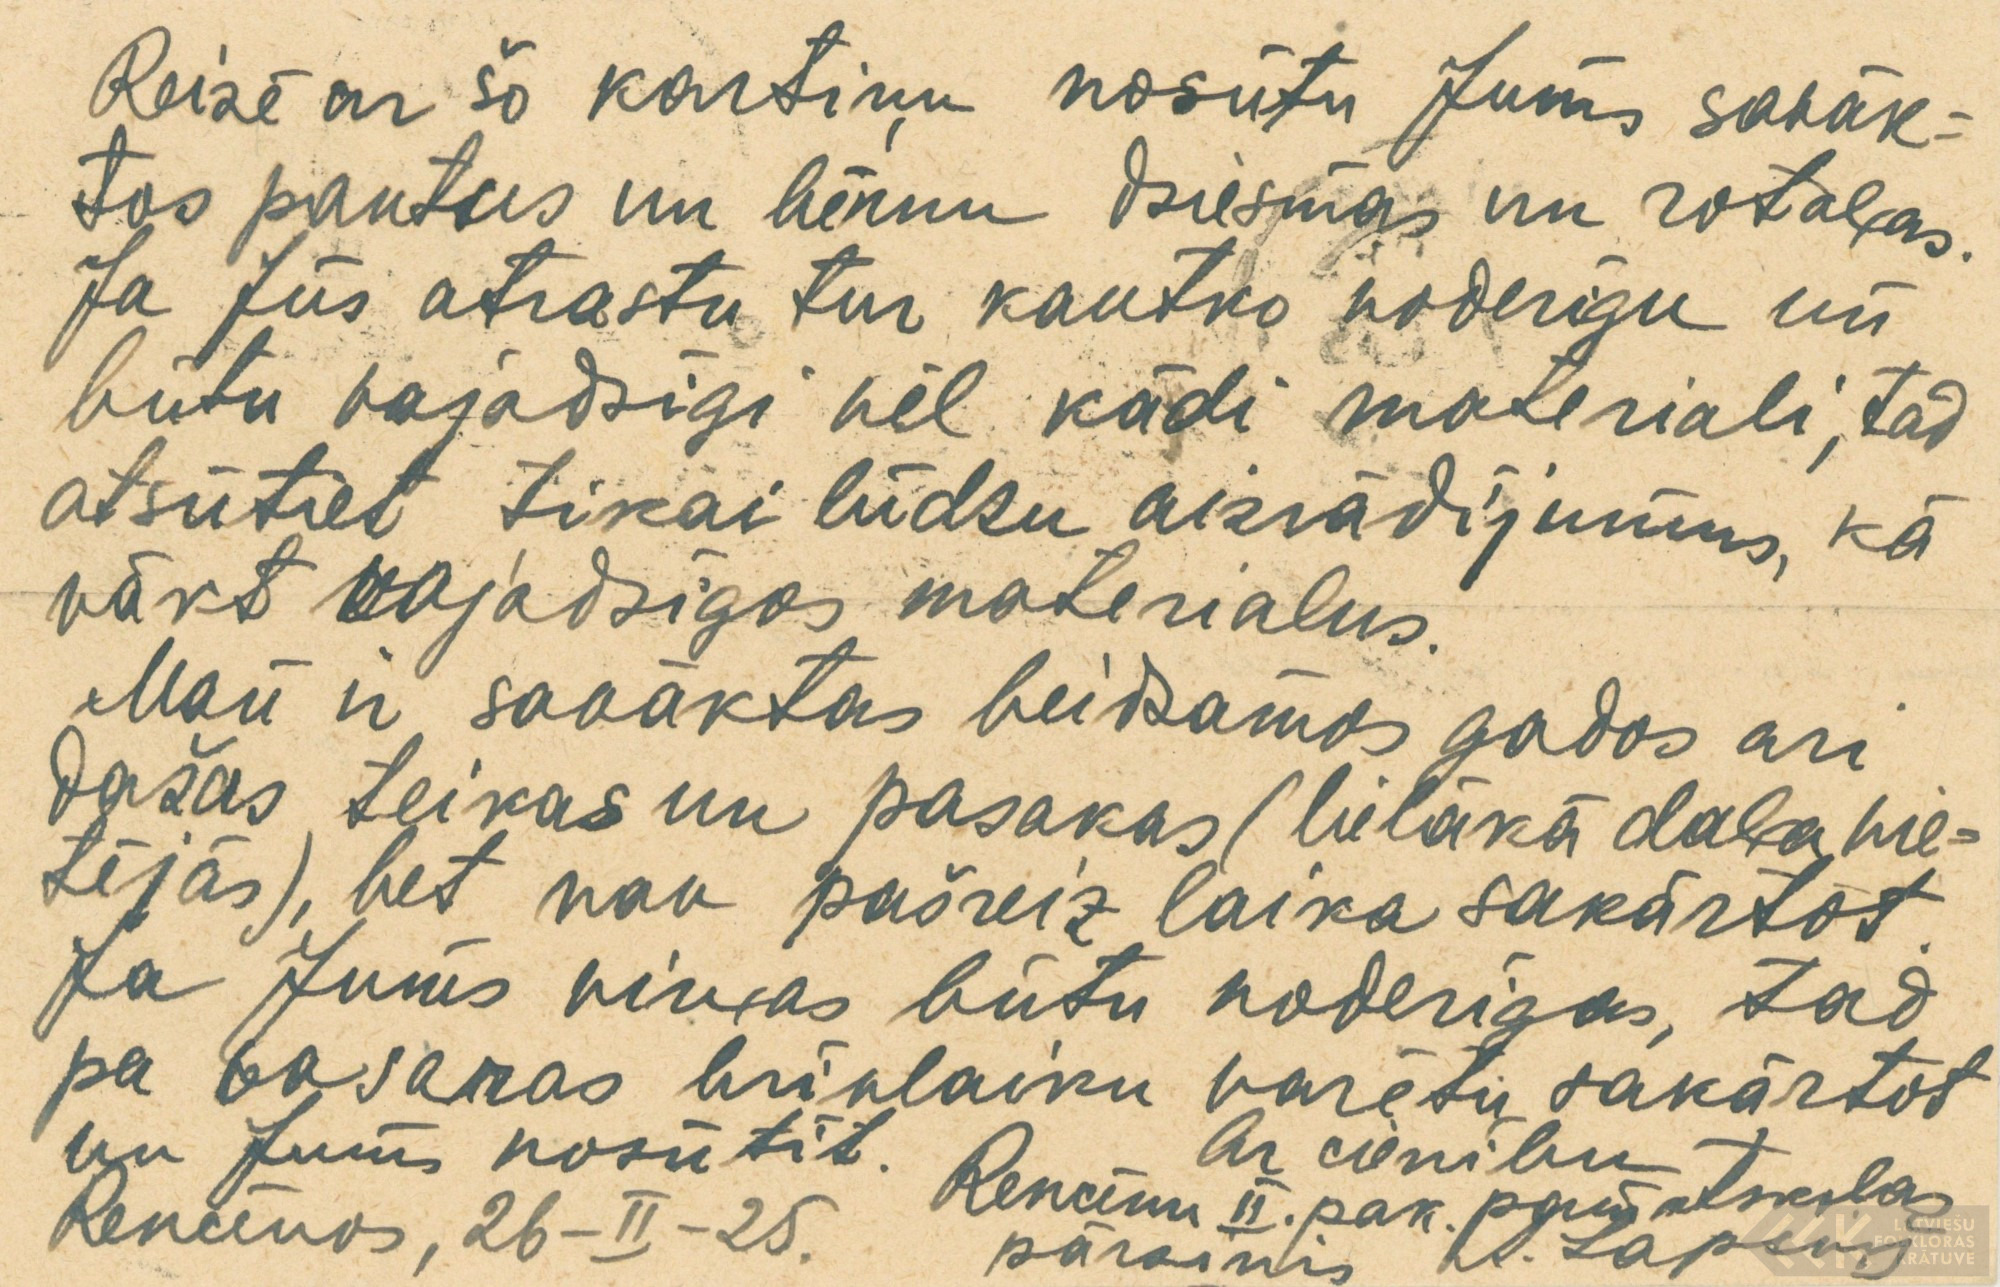 Reizē ar šo kartiņu nosūtu Jums savāk=
tos pantus un bērnu dziesmas un rotaļas.
Ja Jūs atrastu tur kautko noderīgu un
būtu vajadzīgi vēl kādi materiali, tad
atsūtiet tikai lūdzu aizrādījumus, kā
vākt vajadzīgos materialus.
Man ir savāktas beidzamos gados ari
dažas teikas un pasakas (lielākā daļa vie=
tējās), bet nav pašreiz laika sakārtot.
Ja Jums viņas būtu noderīgas, tad
pa vasaras brīvlaiku varētu sakārtot
un Jums nosūtīt.
Ar cienību
Rencēnu II. pak. pamatskolas
Rencēnos, 26-II-25.
pārzinis
LATVIEŠU
FOLKLORAS
KRĀTUVE